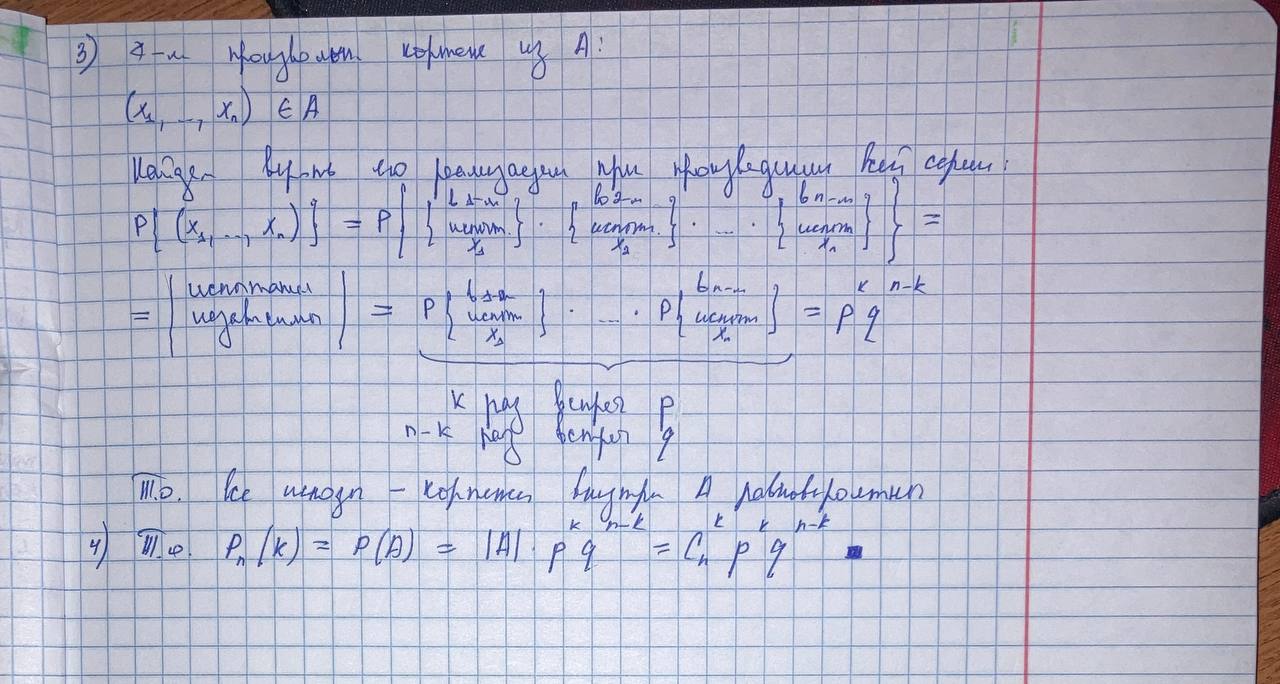 3) Д-м произвольн кортеж из A:
(x₁, ..., xₙ) ∈ A
Найдем вер-ть его реализации при произведении всей серии:
P{(x₁, ..., xₙ)} = P{ {в 1-м испыт. x₁} · {во 2-м испыт. x₂} · ... · {в n-м испыт xₙ} } =
= | испытания независимы | = P{в 1-м испыт x₁} · ... · P{в n-м испыт xₙ} = p^k q^(n-k)
k раз встреч p
n-k раз встреч q
Т.о. все исходы - кортежи внутри A равновероятны
4) Т.о. Pₙ(k) = P(A) = |A| · p^k q^(n-k) = Cₙ^k p^k q^(n-k) ■